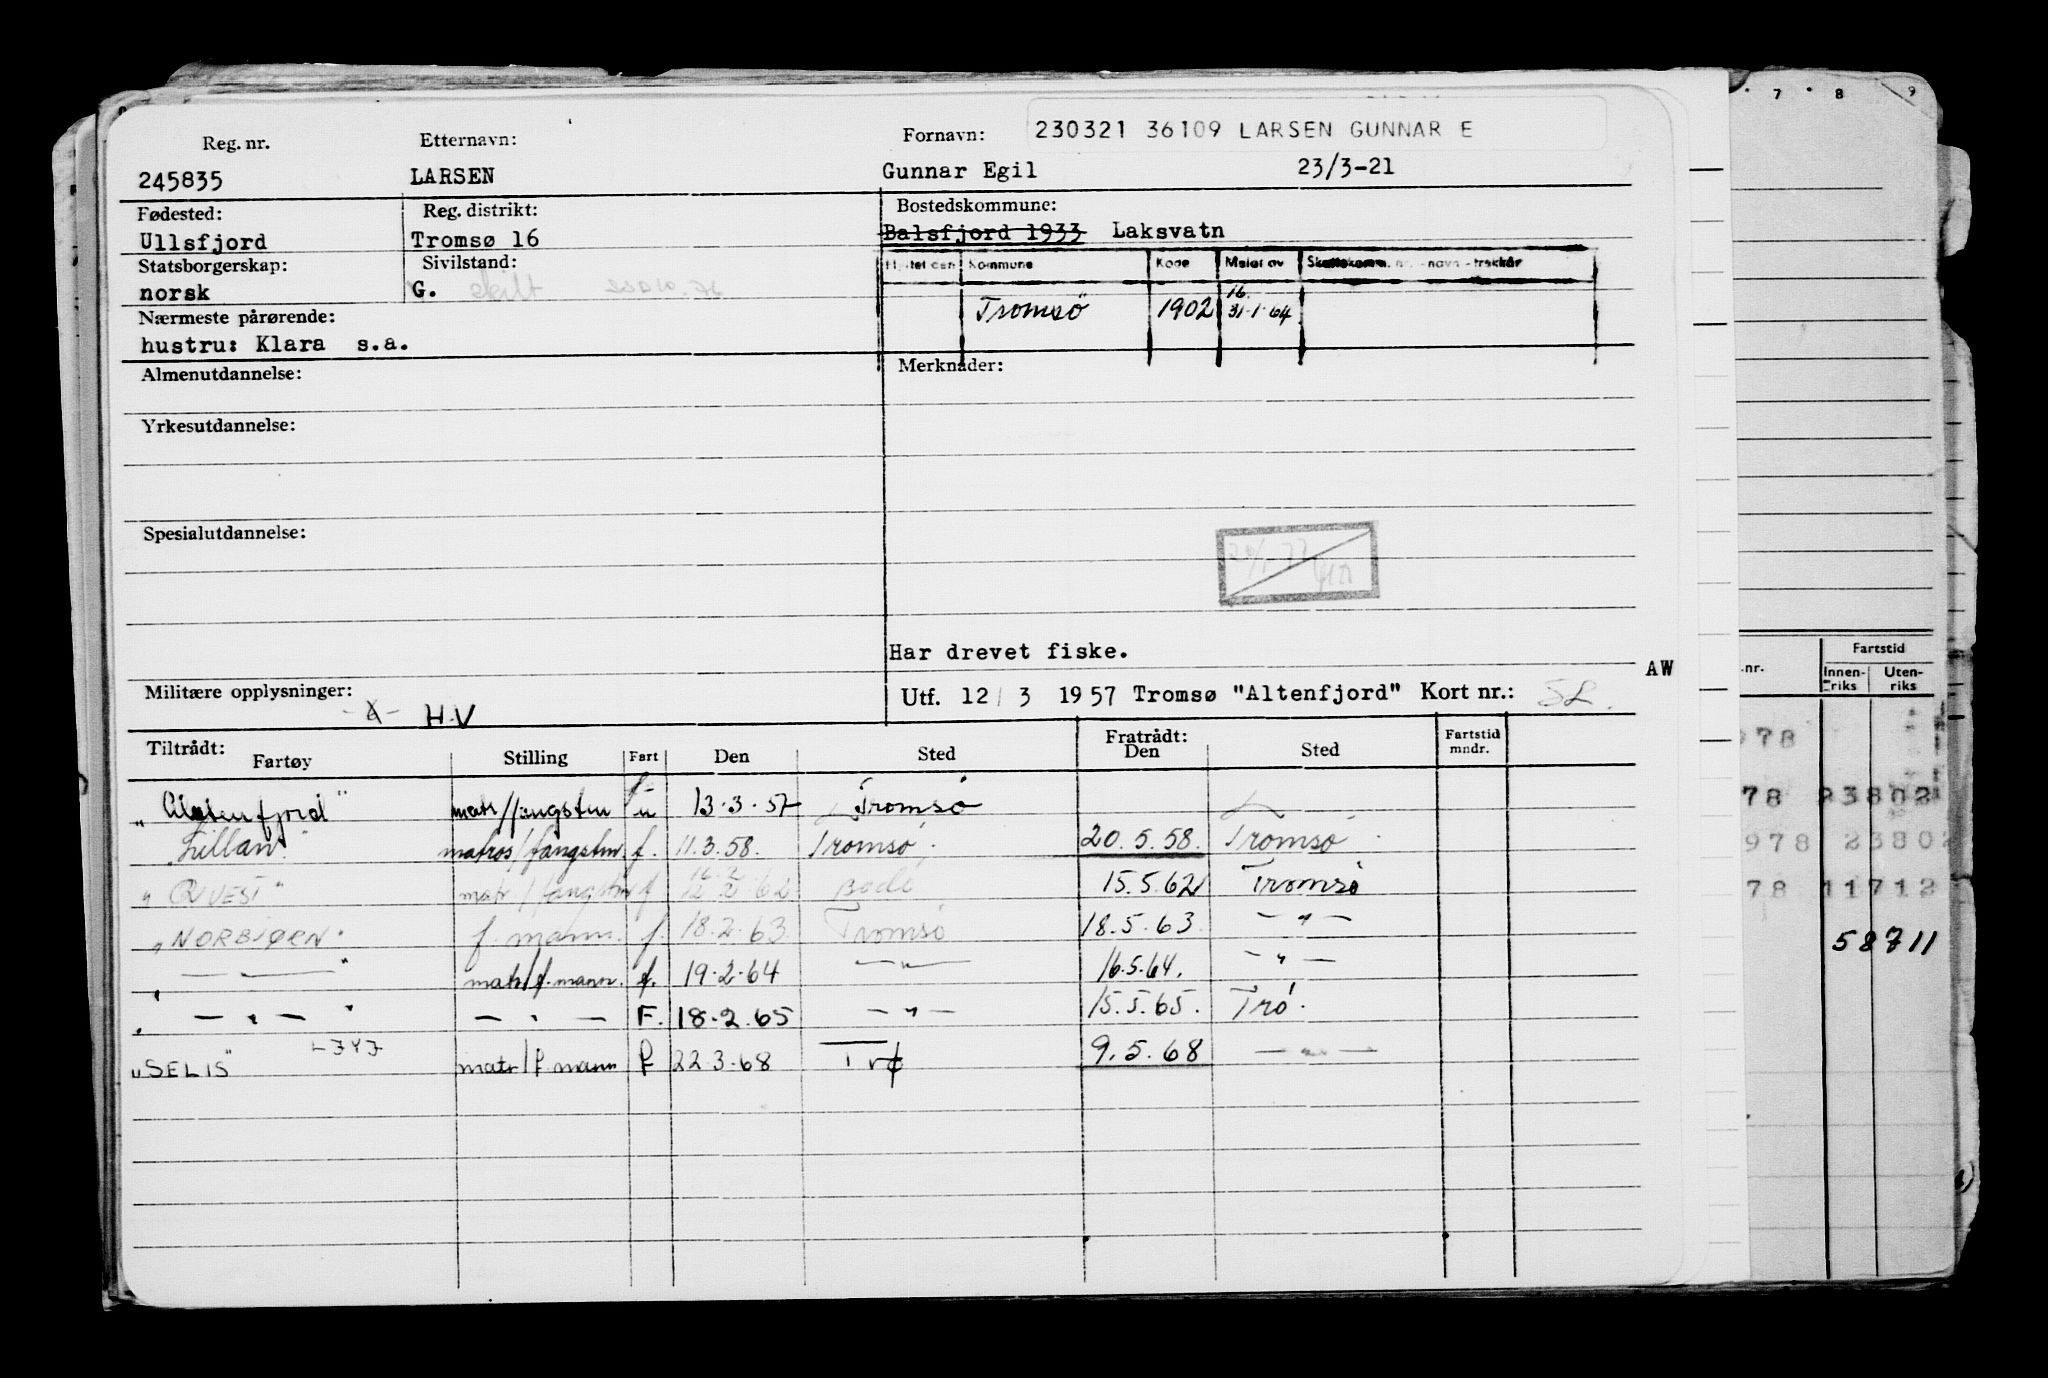 230321 36109 LARSEN GUNNAR E
Reg. nr. Etternavn: Fornavn:
245835 LARSEN Gunnar Egil 23/3-21
Fødested: Reg. distrikt: Bostedskommune:
Ullsfjord Tromsø 16 Balsfjord 1933 Laksvatn
Statsborgerskap: Sivilstand:
norsk G. skilt
Kommune Kode Meldt av
Tromsø 1902 16 31-1-64
Nærmeste pårørende:
hustru: Klara s.a.
Almenutdannelse: Merknader:
Yrkesutdannelse:
Spesialutdannelse:
Har drevet fiske.
AW
Militære opplysninger: H.V
Utf. 12/ 3 1957 Tromsø "Altenfjord" Kort nr.:
Tiltrådt: Fratrådt: Fartstid mndr.
Fartøy Stilling Fart Den Sted Den Sted
"Altenfjord" matr/fangstm u 13-3-57 Tromsø
"Lillan" matros/fangstm. f. 11.3.58. Tromsø. 20.5.58. Tromsø.
"QUEST" matr/fangstm f 12.2.62 Bodø 15.5.62 Tromsø
"NORBJØRN" f. mann. f. 18.2.63. Tromsø 18.5.63. — " —
" — " — " matr/f.mann. f. 19-2-64 — " — 16.5.64. — " —
" — " — " — " — F. 18-2.65 — " — 15.5.65. Trø.
"SELIS" LJYJ matr/f mann f 22.3-68 Trø 9.5.68 — " —
7 8 9
.nr. Fartstid
Innenriks Utenriks
978
78 23802
978 23802
78 11712
58711